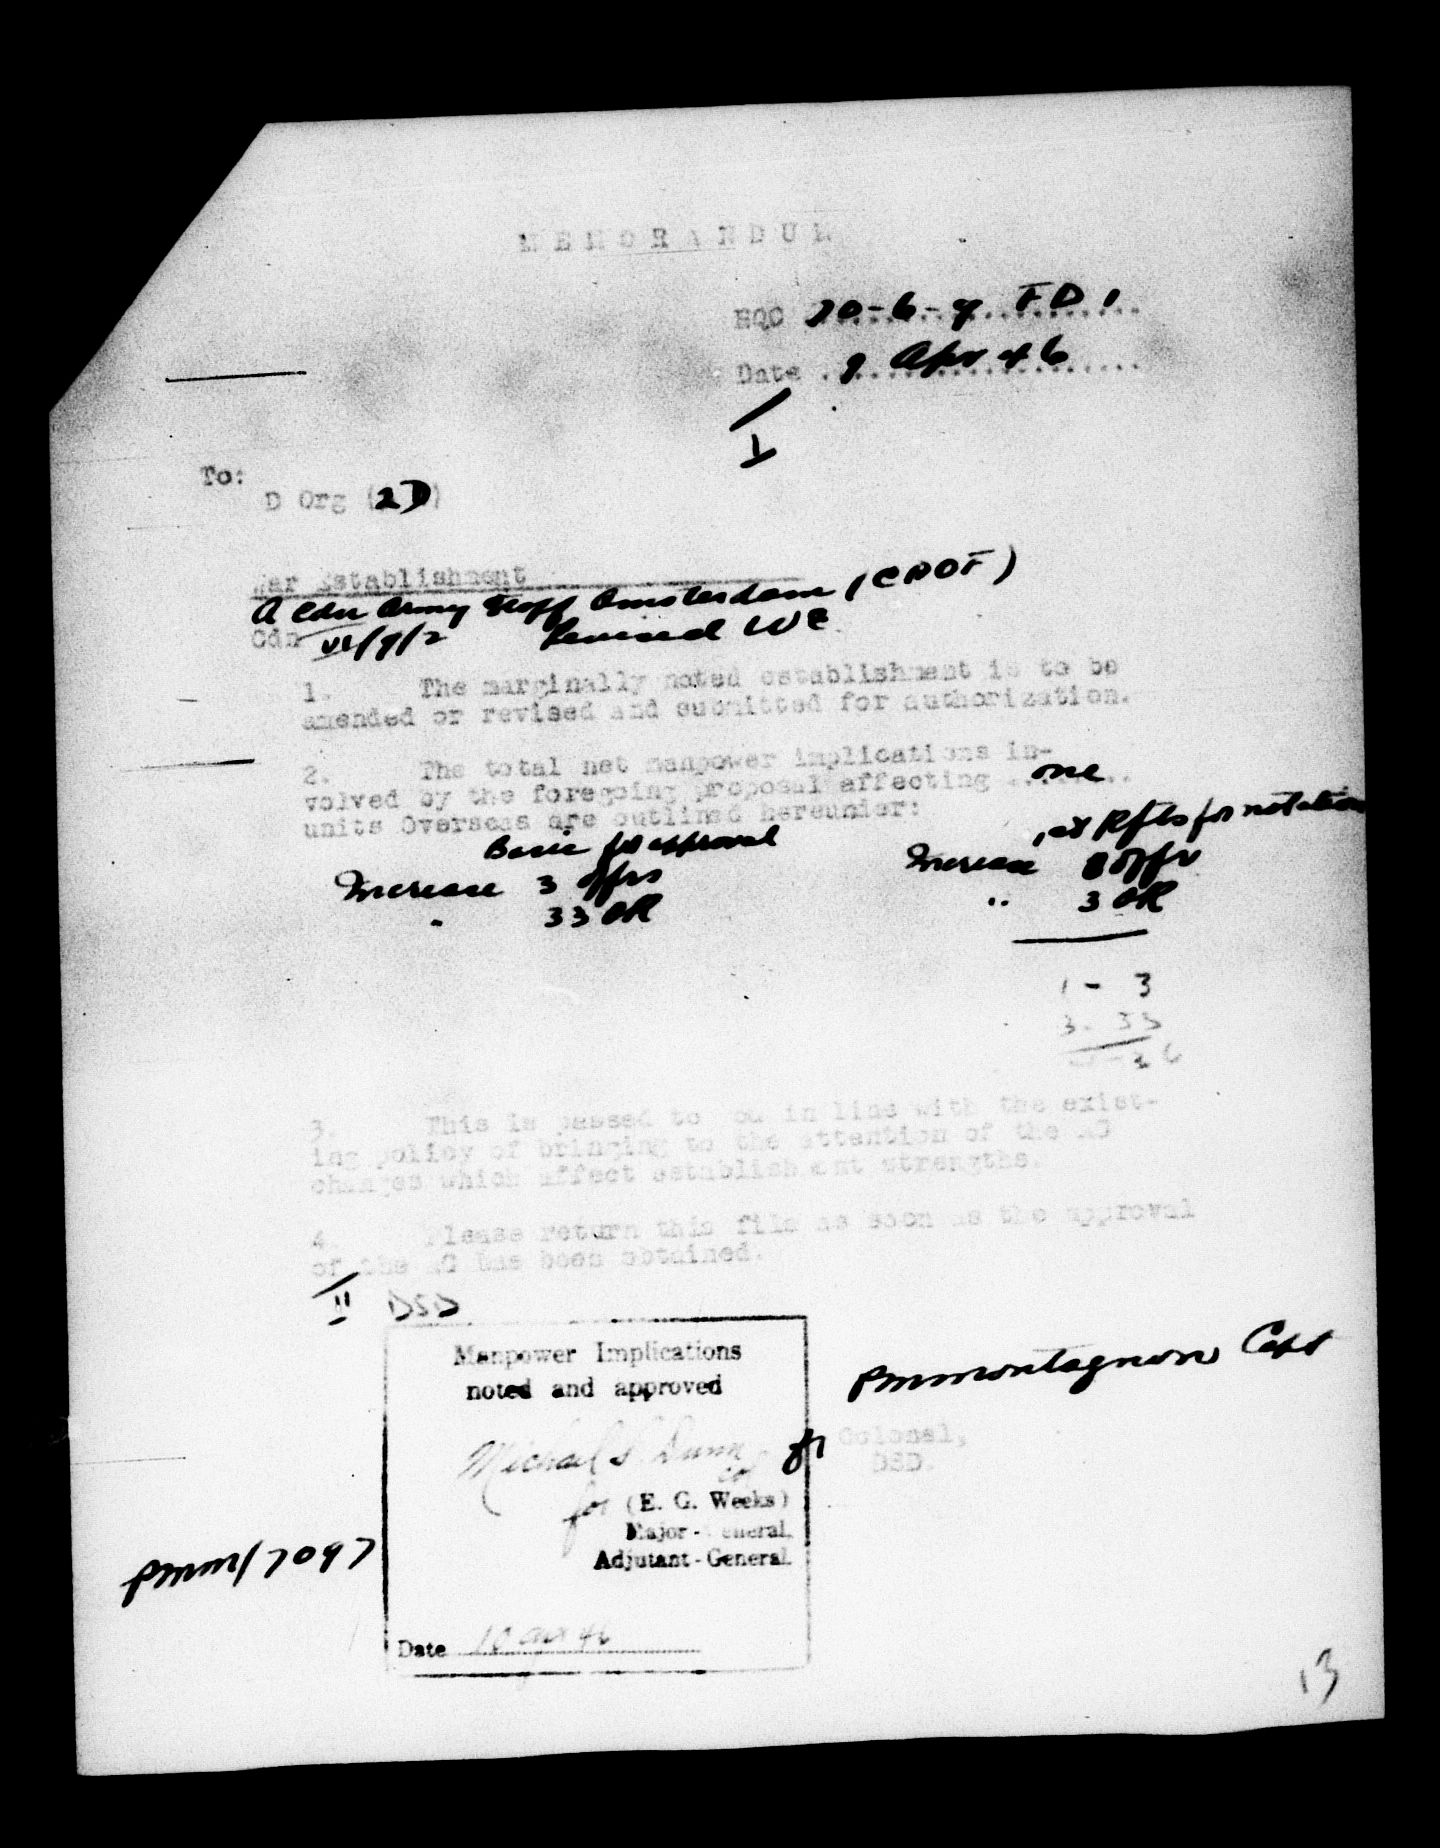 MEMORANDUM
HQC 70-6-9 FD 1
Date 9 Apr 46
I
To:
D Org (2D)
War Establishment
A Cdn Army Staff Amsterdam (CAOF)
Cdn VI/9/2 Revised WE
1. The marginally noted establishment is to be
amended or revised and submitted for authorization.
2. The total net manpower implications in-
volved by the foregoing proposal affecting one
units Overseas are outlined hereunder:
Basic for approval
Rfts for notation
Increase 3 offrs Increase offr
" 33 OR " 3 OR
1 - 3
3 - 33
3. This is passed to you in line with the exist-
ing policy of bringing to the attention of the AG
changes which affect establishment strengths.
4. Please return this file as soon as the approval
of the AG has been obtained.
II DSD
Manpower Implications
noted and approved
Michael S. Dunn
Col
for (E. G. Weeks)
Major-General.
Adjutant-General.
Date 10 Apr 46
PMMontagnon Capt
for Colonel,
DSD.
PMM/7097
13